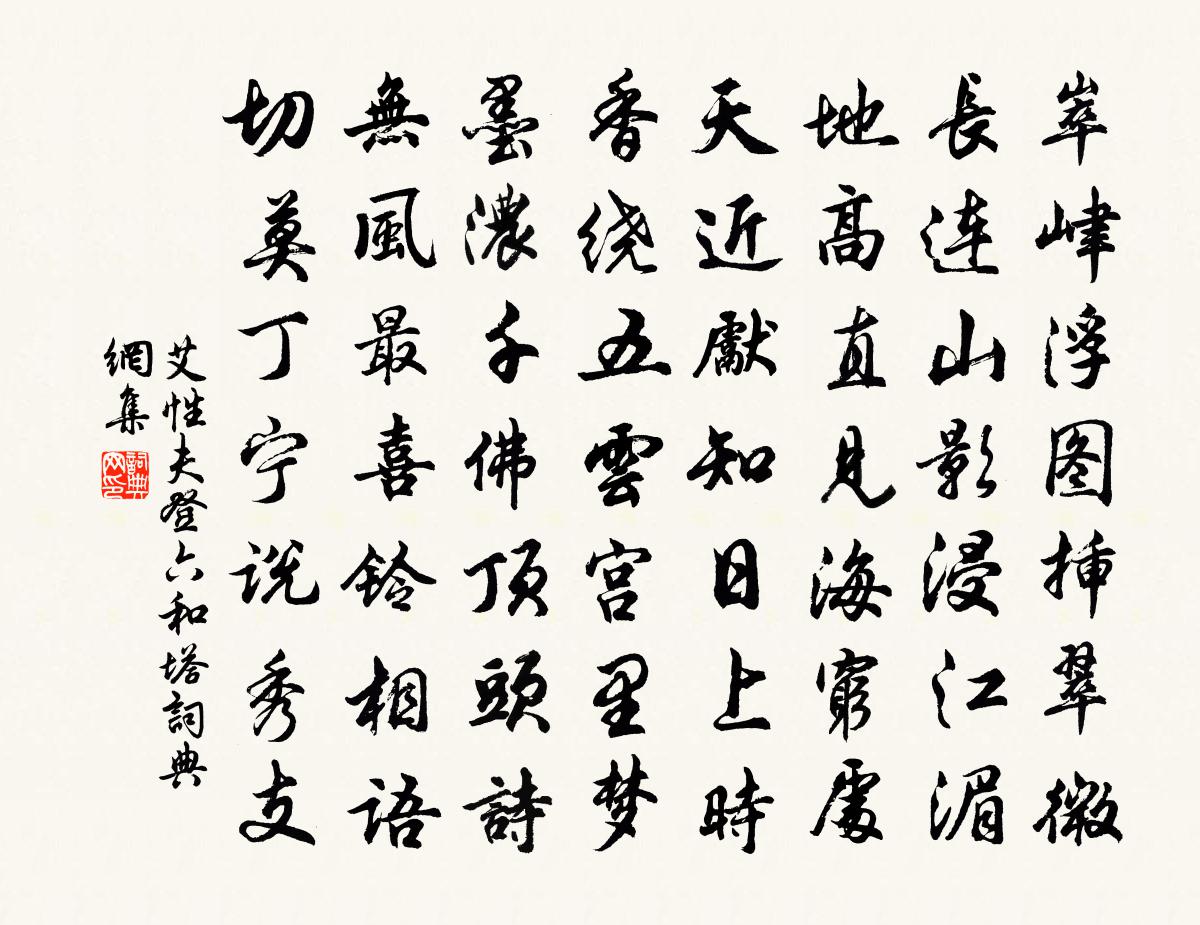 崒峍浮图挿翠微
長連山影浸江湄
地高直見海窮處
天近獻知日上時
香绕五雲宫里梦
墨濃千佛顶頭詩
無風最喜鈴相语
切莫丁宁说秀支
艾性夫登六和塔詞典
網集
詞典
网印